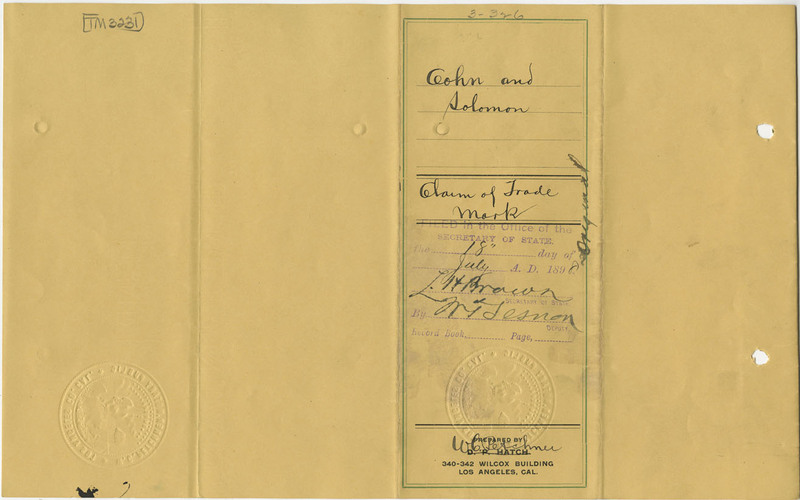 TM3231
3-326
Cohn and
Solomon
Claim of Trade
Mark
Original
FILED in the Office of the
SECRETARY OF STATE.
the 18" day of
July A. D. 1898
L. H Brown
SECRETARY OF STATE
By Wm T Sesnon
DEPUTY.
Record Book, Page,
PREPARED BY
D. P. HATCH
340-342 WILCOX BUILDING
LOS ANGELES, CAL.